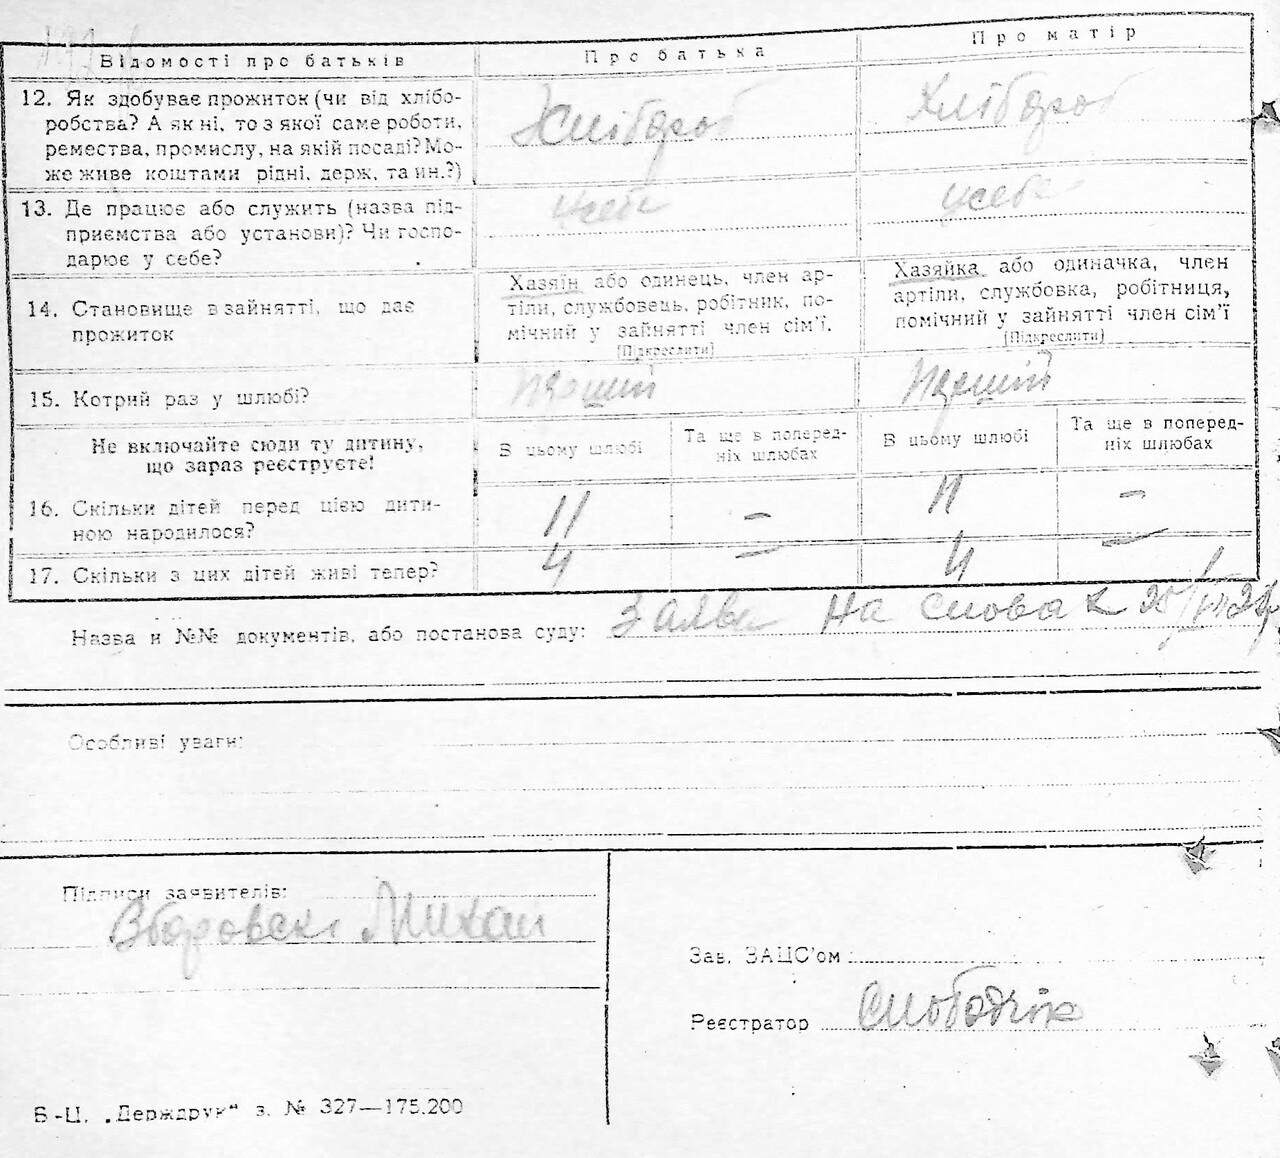 Відомості про батьків
Про батька
Про матір
12. Як здобуває прожиток (чи від хлібо-
робства? А як ні, то з якої саме роботи,
ремества, промислу, на якій посаді? Мо-
же живе коштами рідні, держ, та ин.?)
Хлібороб
Хлібороб
13. Де працює або служить (назва під-
приємства або установи)? Чи госпо-
дарює у себе?
усебе
усебе
14. Становище в зайнятті, що дає
прожиток
Хазяїн або одинець, член ар-
тіли, службовець, робітник, по-
мічний у зайнятті член сім'ї.
(Підкреслити)
Хазяйка або одиначка, член
артіли, службовка, робітниця,
помічний у зайнятті член сім'ї
(Підкреслити)
15. Котрий раз у шлюбі?
перший
перший
Не включайте сюди ту дитину,
що зараз реєструєте!
В цьому шлюбі
Та ще в поперед-
ніх шлюбах
В цьому шлюбі
Та ще в поперед-
ніх шлюбах
16. Скільки дітей перед цією дити-
ною народилося?
11
–
11
–
17. Скільки з цих дітей живі тепер?
4
–
4
–
Назва и №№ документів, або постанова суду: Заява на слова
Особливі уваги:
Підписи заявителів:
Зборовскі Михал
Зав. ЗАЦС'ом
Реєстратор Слободчік
Б-Ц. „Держдрук“ з. № 327—175.200